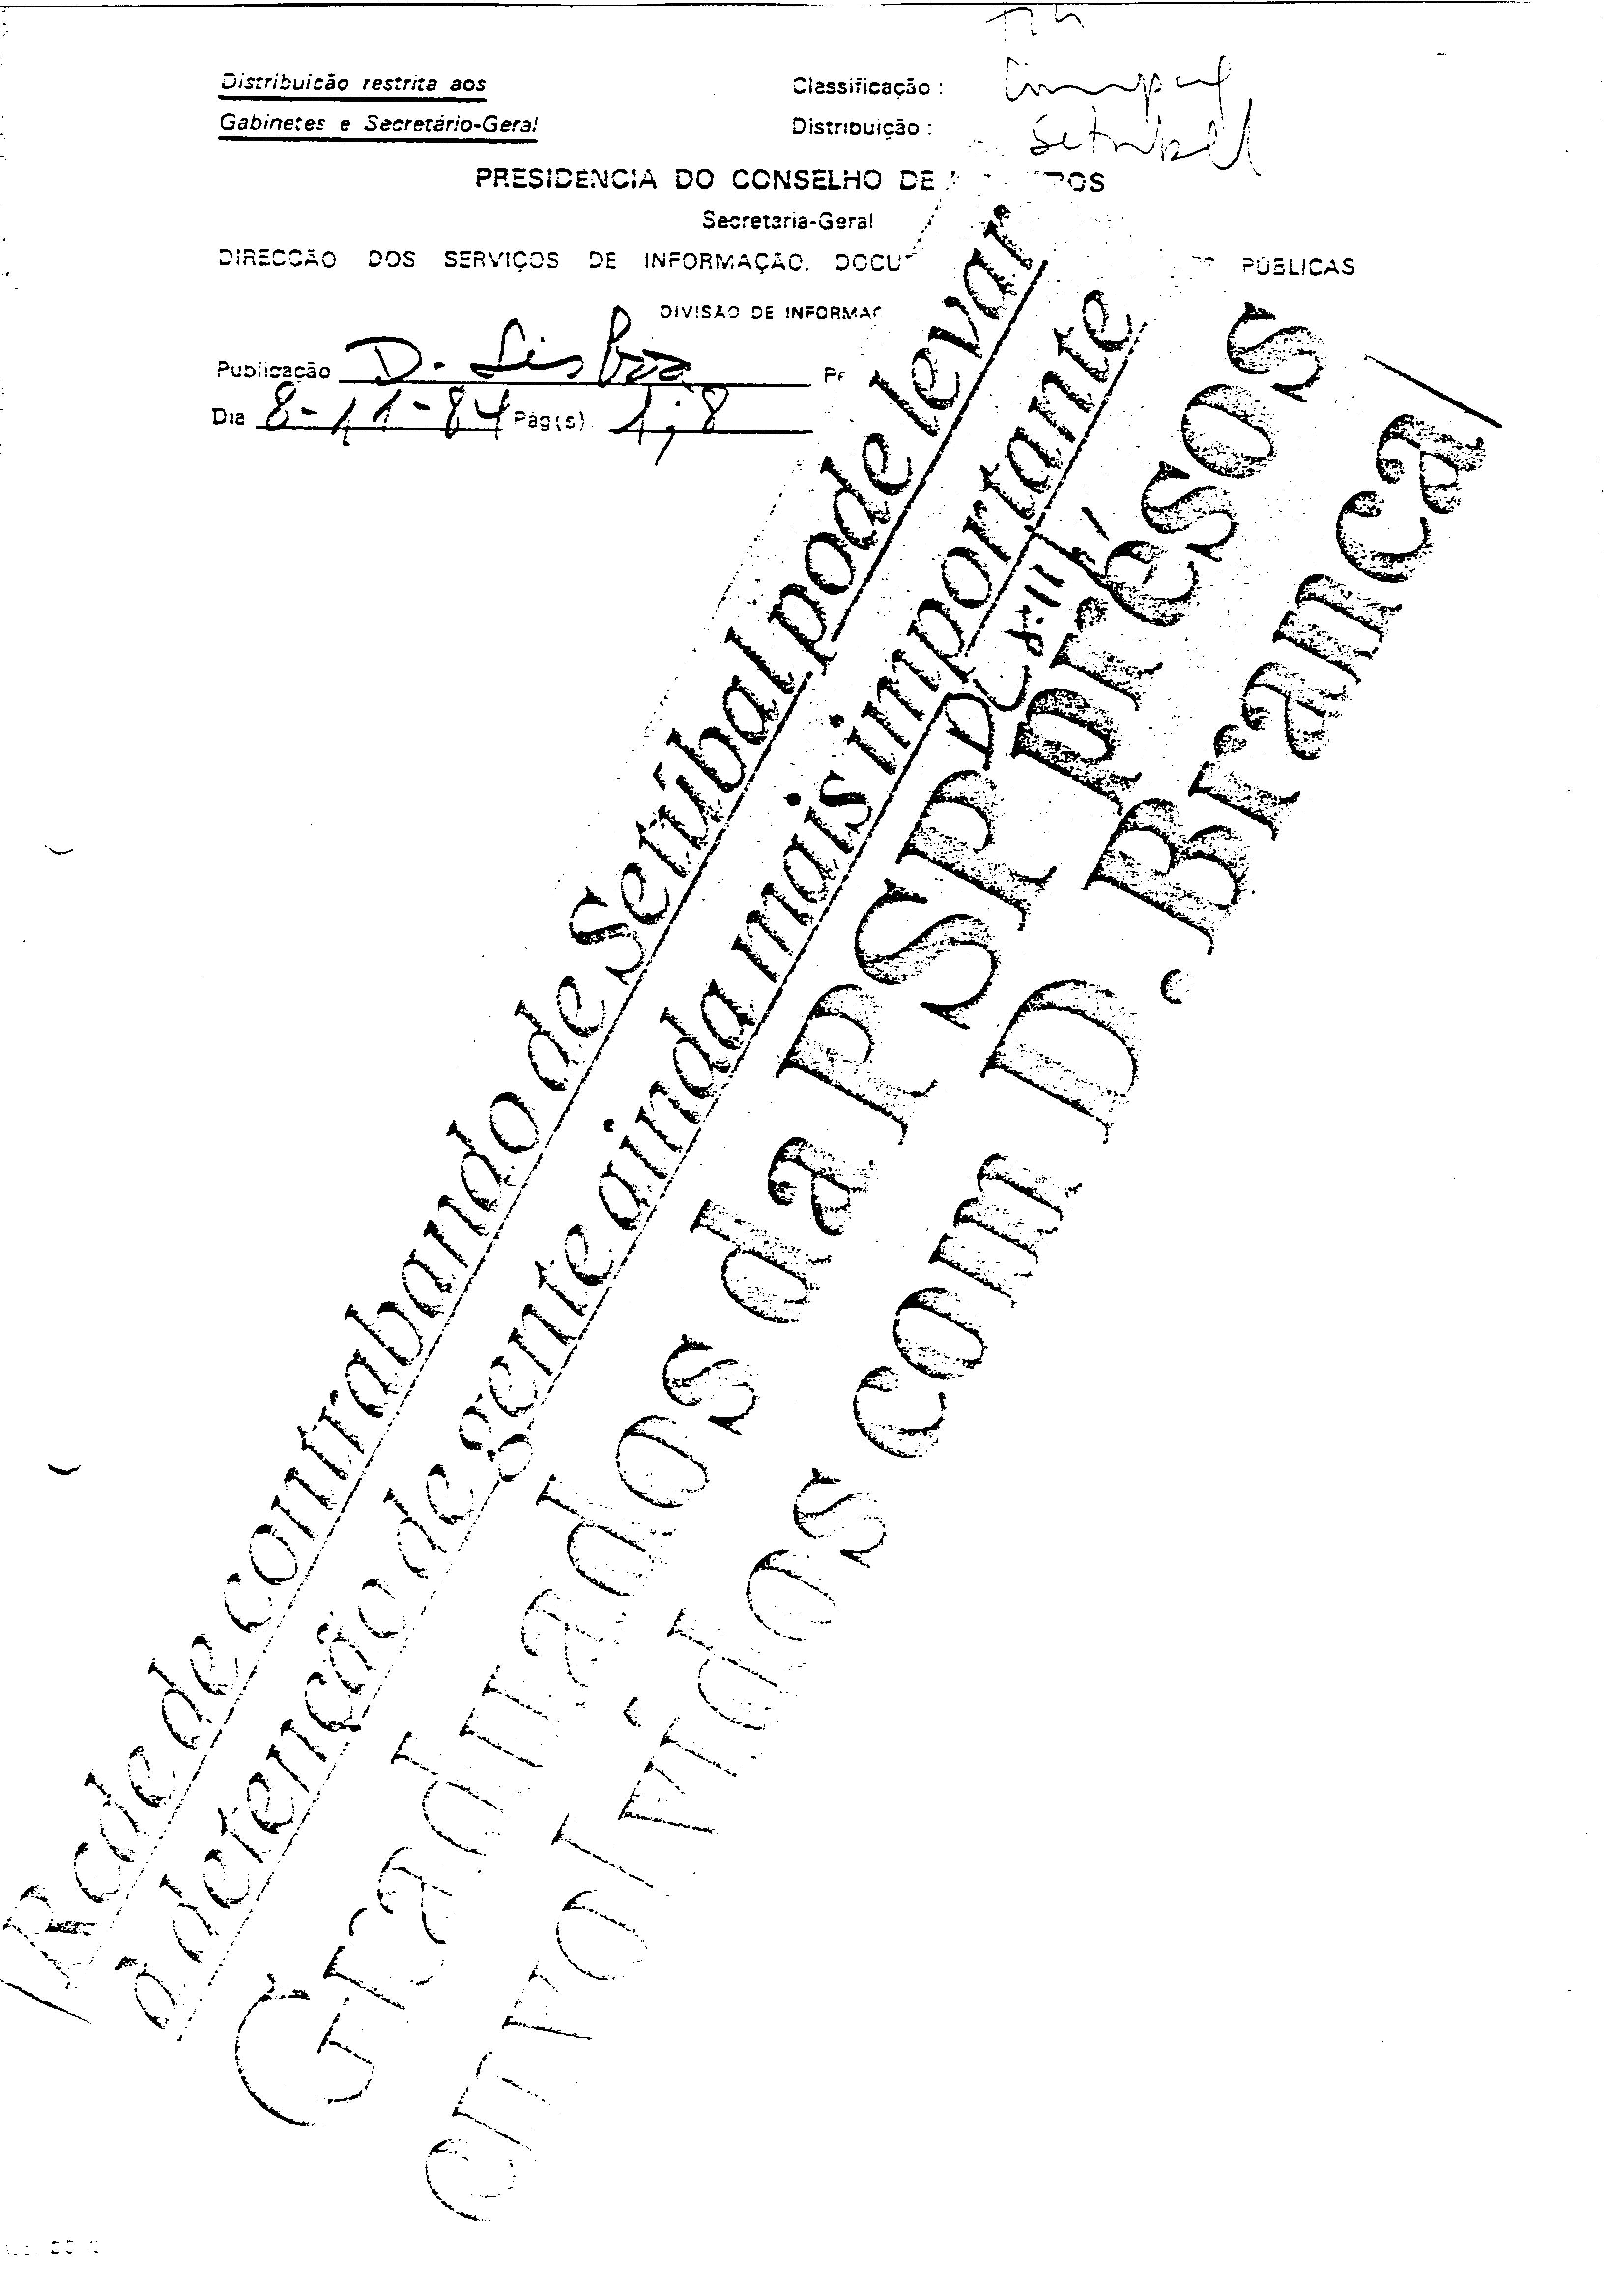 Distribuicão restrita aos
Gabinetes e Secretário-Geral
Classificação :
Distribuição :
Setubal
PRESIDÊNCIA DO CONSELHO DE
Secretaria-Geral
DIRECÇÃO DOS SERVIÇOS DE INFORMAÇÃO, DOCU
PÚBLICAS
DIVISÃO DE INFORMAÇ
Publicação D. Lisboa
Dia 8-11-84 Pág(s). 1; 8
Rede de contrabando de Setúbal pode levar
à detenção de gente ainda mais importante
Graduados da PSP presos
envolvidos com D. Branca